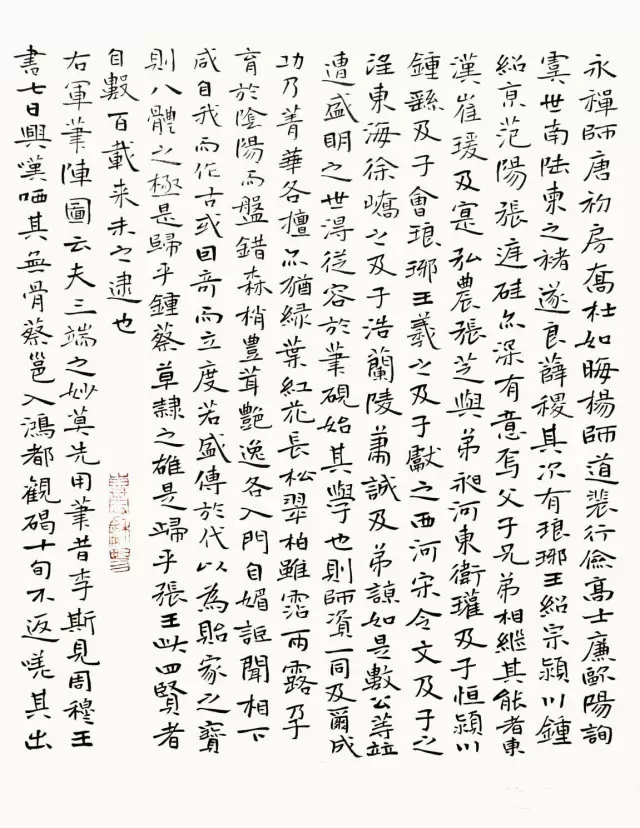 永禪師唐初房喬杜如晦楊師道裴行儉高士廉歐陽詢
虞世南陸柬之褚遂良薛稷其次有琅琊王紹宗潁川鍾
紹京范陽張庭硅亦深有意焉父子兄弟相繼其能者東
漢崔瑗及寔弘農張芝與弟昶河東衛瓘及子恒潁川
鍾繇及子會琅琊王羲之及子獻之西河宋令文及子之
東海徐嶠之及子浩蘭陵蕭誠及弟諒如是數公等並
遭盛明之世得從容於筆硯始其學也則師資一同及爾成
功乃菁華各擅亦猶綠葉紅花長松翠柏雖沾雨露孕
育於陰陽而盤錯森梢豐茸艷逸各入門自媚詎聞相下
咸自我而作古或因奇而立度若盛傳於代以為貽家之寶
則八體之極是歸乎鍾蔡草隸之雄是歸乎張王此四賢者
自數百載来未之逮也
右軍筆陣圖云夫三端之妙莫先用筆昔李斯見周穆王
書七日興嘆哂其無骨蔡邕入鴻都觀碣十旬不返嗟其出